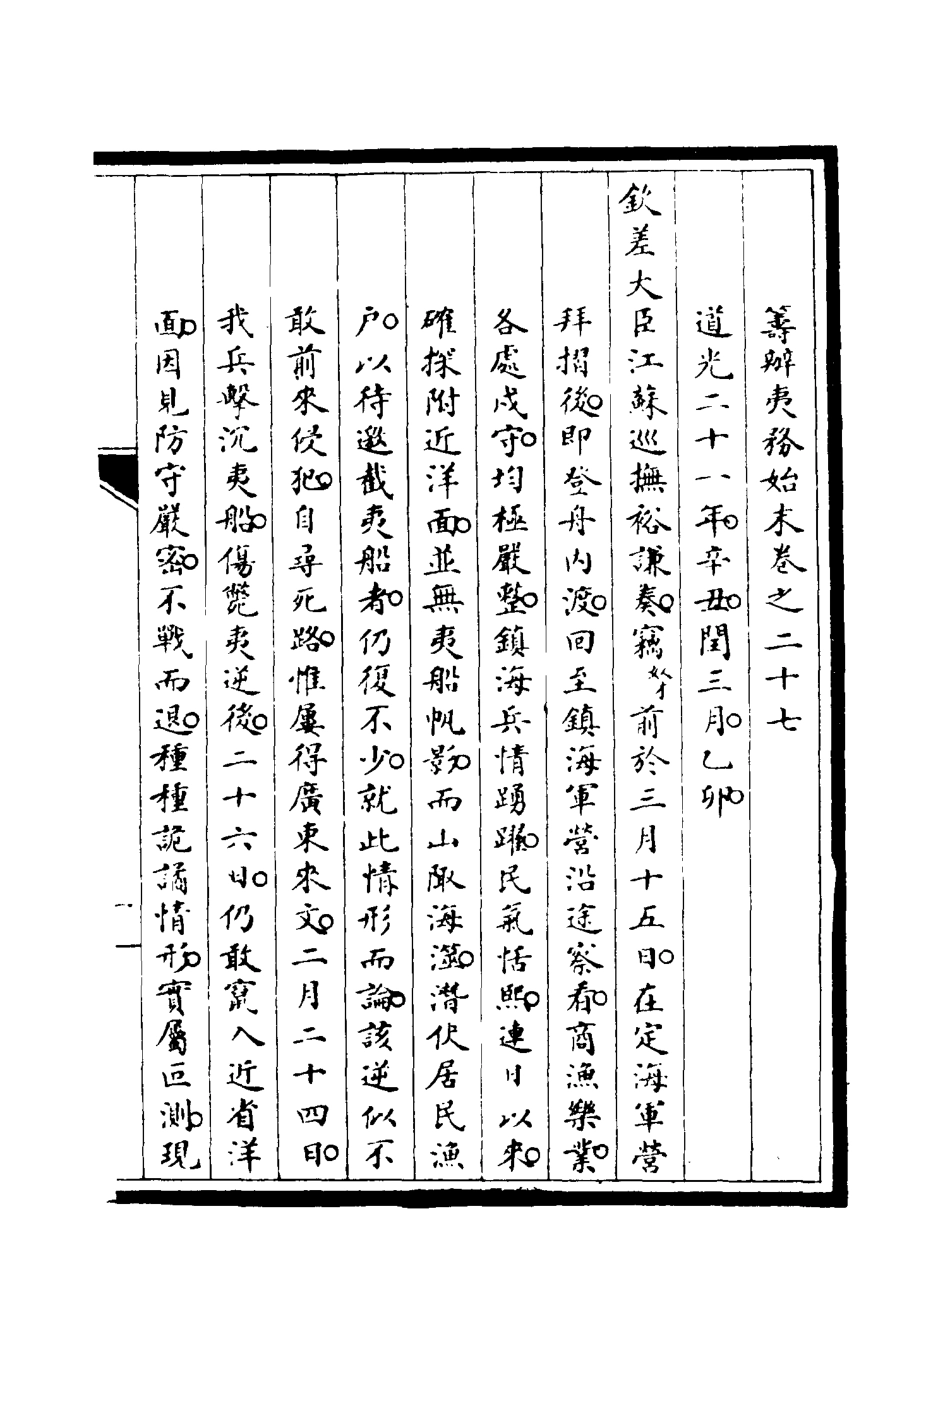 籌辦夷務始末卷之二十七
道光二十一年。辛丑。閏三月。乙卯。
欽差大臣江蘇巡撫裕謙奏。竊奴才前於三月十五日。在定海軍營
拜摺後。即登舟內渡。回至鎮海軍營沿途察看。商漁樂業。
各處戍守。均極嚴整。鎮海兵情踴躍。民氣恬熙。連日以來。
確探附近洋面。並無夷船帆影。而山陬海澨。潛伏居民漁
戶。以待邀截夷船者。仍復不少。就此情形而論。該逆似不
敢前來侵犯。自尋死路。惟屢得廣東來文。二月二十四日。
我兵擊沉夷船。傷斃夷逆後。二十六日。仍敢竄入近省洋
面。因見防守嚴密。不戰而退。種種詭譎情形。實屬叵測。現